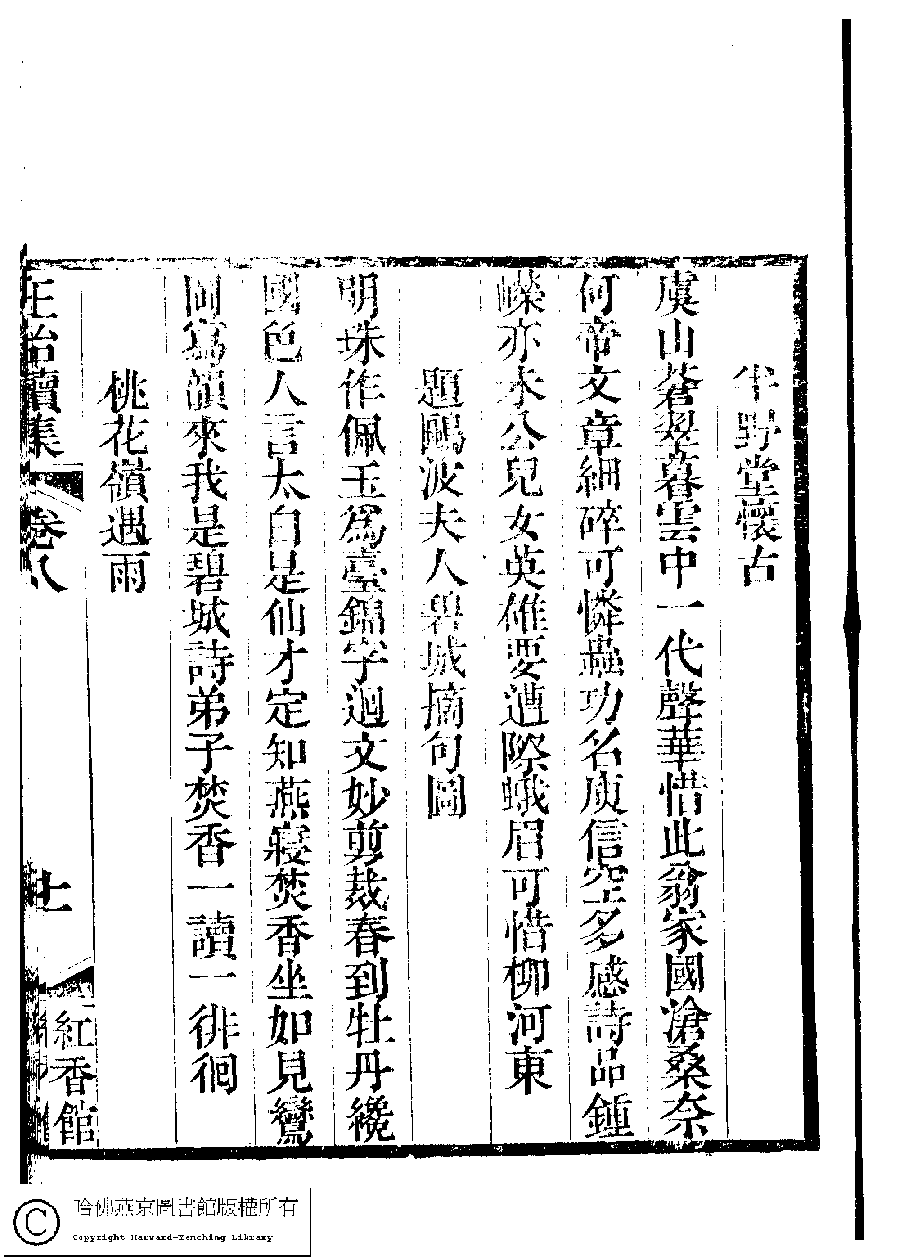 半野堂懷古
虞山蒼翠暮雲中一代聲華惜此翁家國滄桑奈
何帝文章細碎可憐蟲功名庾信空多感詩品鍾
嶸亦未公兒女英雄要遭際蛾眉可惜柳河東
題鷗波夫人碧城摘句圖
明珠作佩玉爲臺錦字迴文妙剪裁春到牡丹纔
國色人言太白是仙才定知燕寢焚香坐如見鸞
同寫韻來我是碧城詩弟子焚香一讀一徘徊
桃花嶺遇雨
續集
卷八
十一
紅香館
哈佛燕京圖書館版權所有
Copyright Harvard-Yenching Library